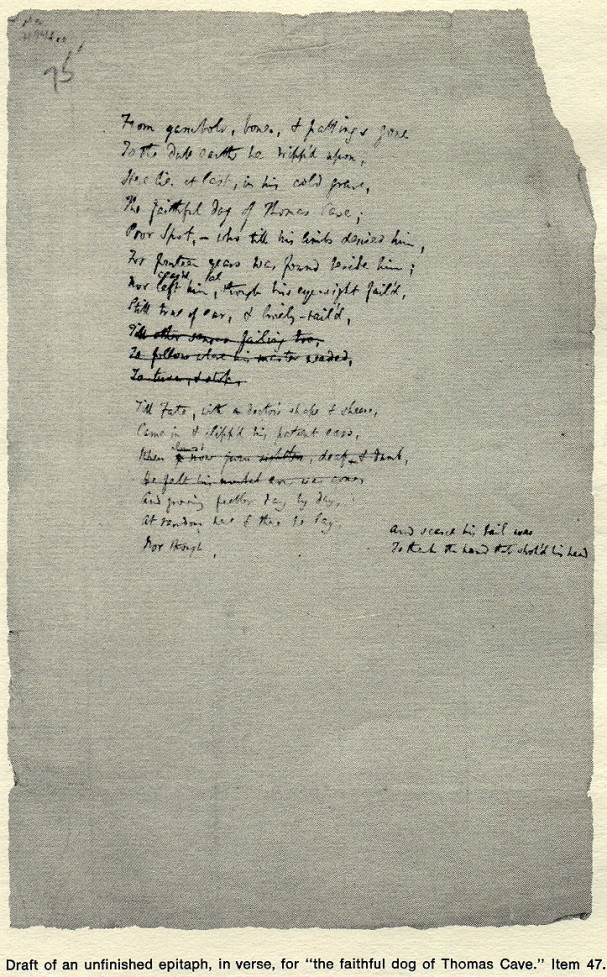 75
From gambols, bones, & pattings gone
To the dark earth he tripp'd upon,
Here lies at last, in his cold grave,
The faithful dog of Thomas Cave;
Poor Spot, – who till his limbs denied him,
For fourteen years was found beside him;
Nor left him, though his eye-sight fail'd,
Still true of ear, & lively-tail'd,
Till other senses failing too,
To follow where his master
To
Till Fate, with a doctor's shape & sheers,
Came in & clipp'd his patent ears,
When now grown, deaf, & dumb,
He felt his
And growing feebler day by day,
At random here & there he lay,
Nor though,
And scarce his tail was
To thank the hand that his head
Draft of an unfinished epitaph, in verse, for "the faithful dog of Thomas Cave." Item 47.